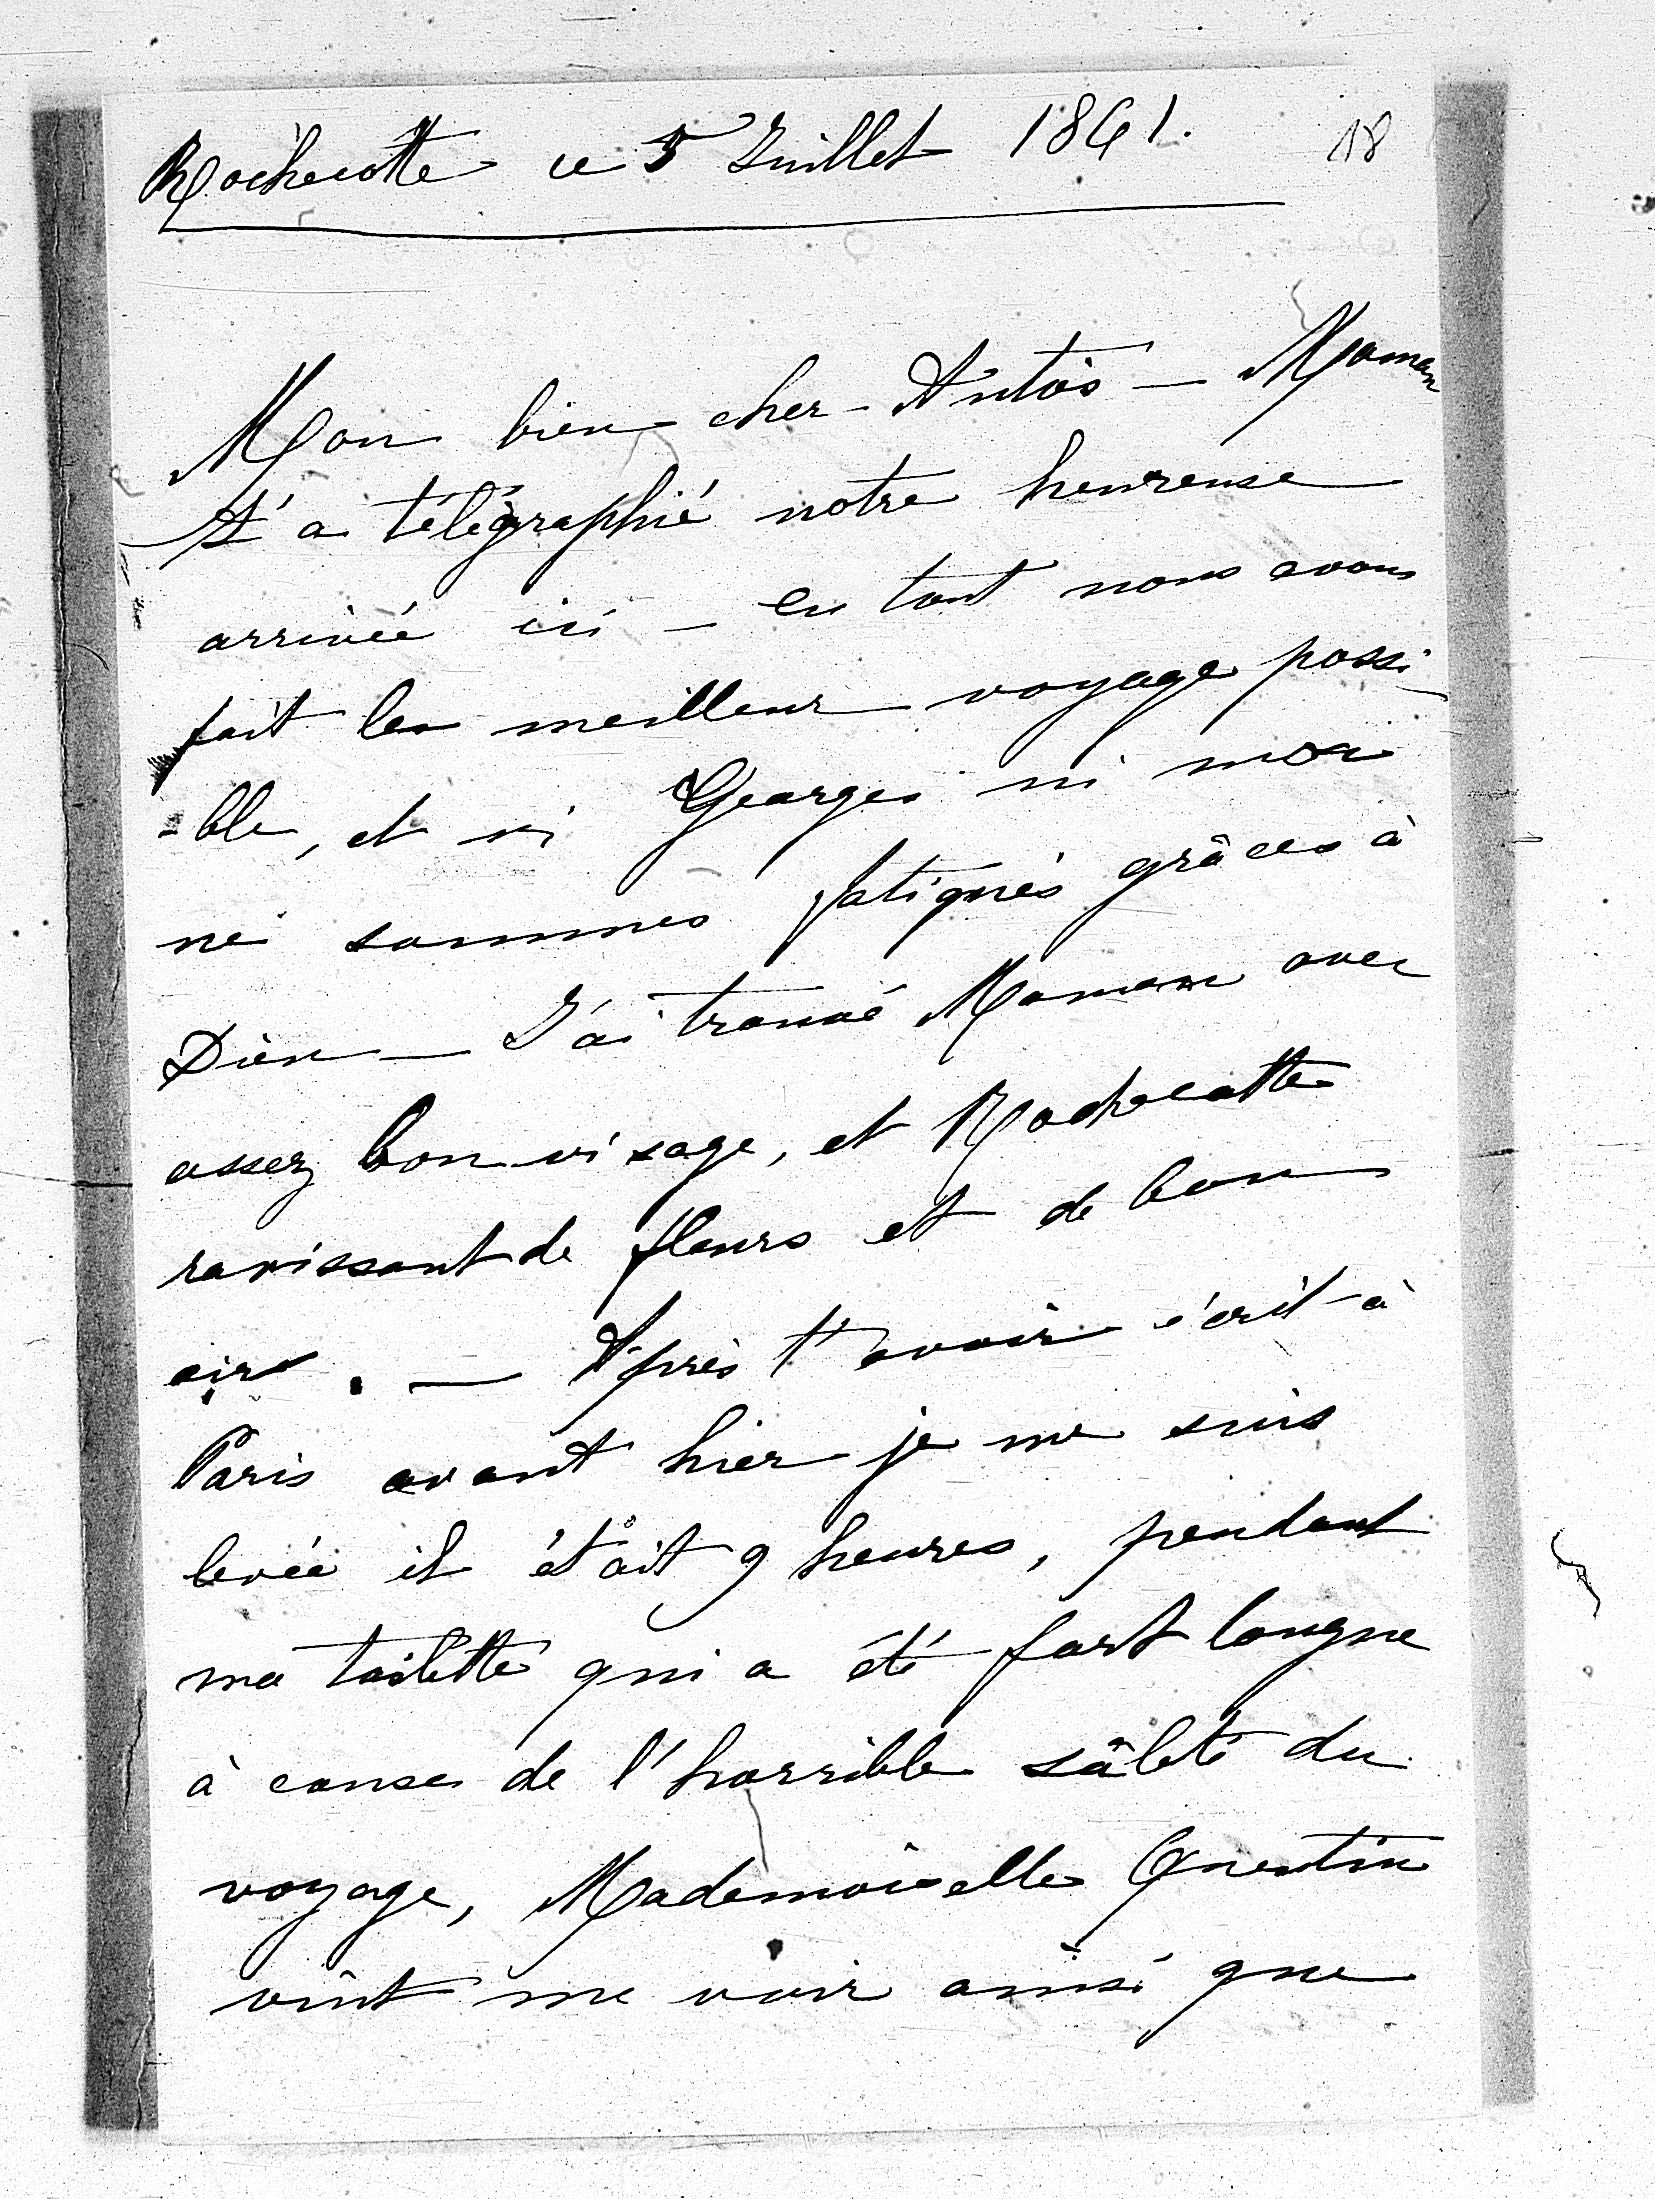 Rochecotte ce 5 Juillet 1861. 18
Mon bien cher Antoś — Maman
t'a télégraphié notre heureuse
arrivée ici — en tout nous avons
fait le meilleur voyage possi
-ble, et ni Georges ni moi
ne sommes fatigués grâces à
Dieu — J'ai trouvé Maman avec
assez bon visage, et Rochecotte
ravissant de fleurs et de bon
air. — Après t'avoir écrit à
Paris avant hier je me suis
levée il était 9 heures, pendant
ma toilette qui a été fort longue
à cause de l'horrible sâleté du
voyage, Mademoiselle Quentin
vint me voir ainsi que